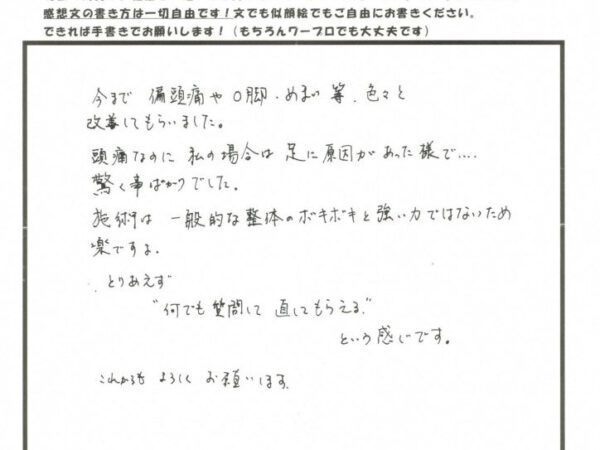 感想文の書き方は一切自由です！文でも似顔絵でもご自由にお書きください。
できれば手書きでお願いします！（もちろんワープロでも大丈夫です）
今まで 偏頭痛や O脚・めまい 等、色々と
改善してもらいました。
頭痛なのに 私の場合は 足に原因があった様で....
驚く事ばかりでした。
施術は 一般的な整体のボキボキと強い力ではないため
楽ですよ。
とりあえず
"何でも質問して 直してもらえる"
という感じです。
これからも よろしく お願いします。